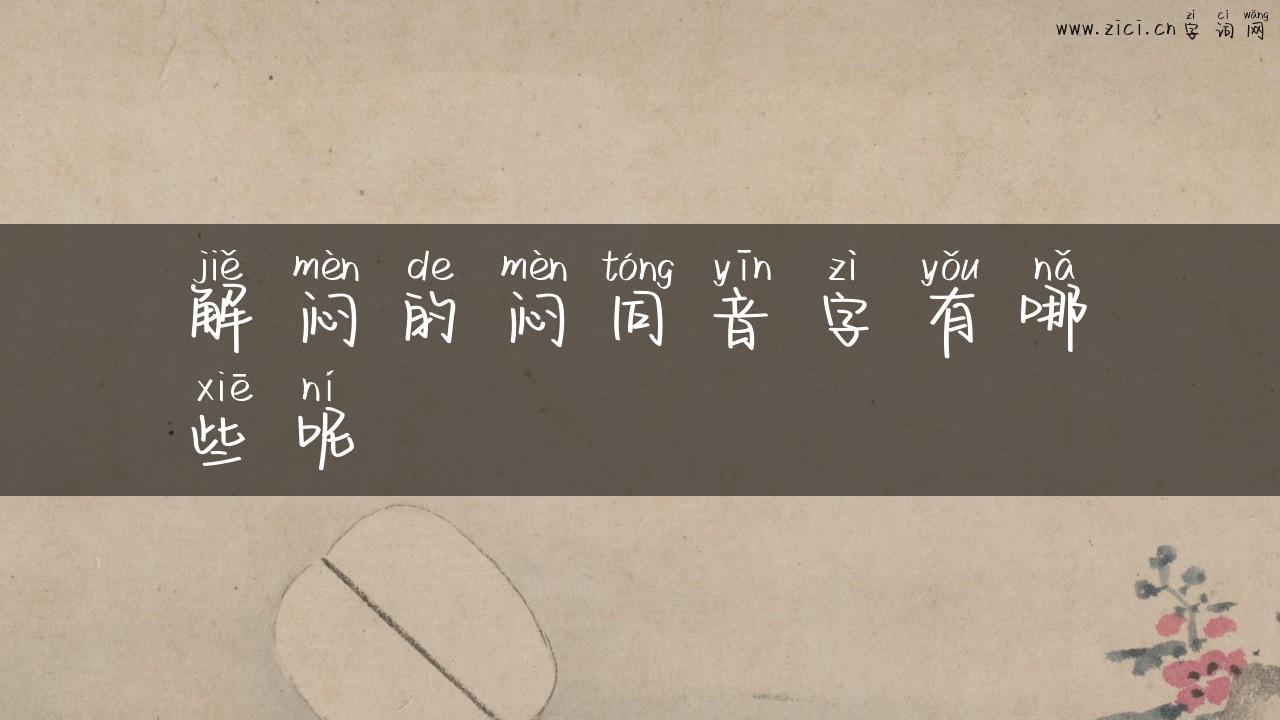 zì cí wǎng
www.zici.cn字词网
jiě mèn de mèn tóng yīn zì yǒu nǎ
解闷的闷同音字有哪
xiē ní
些呢